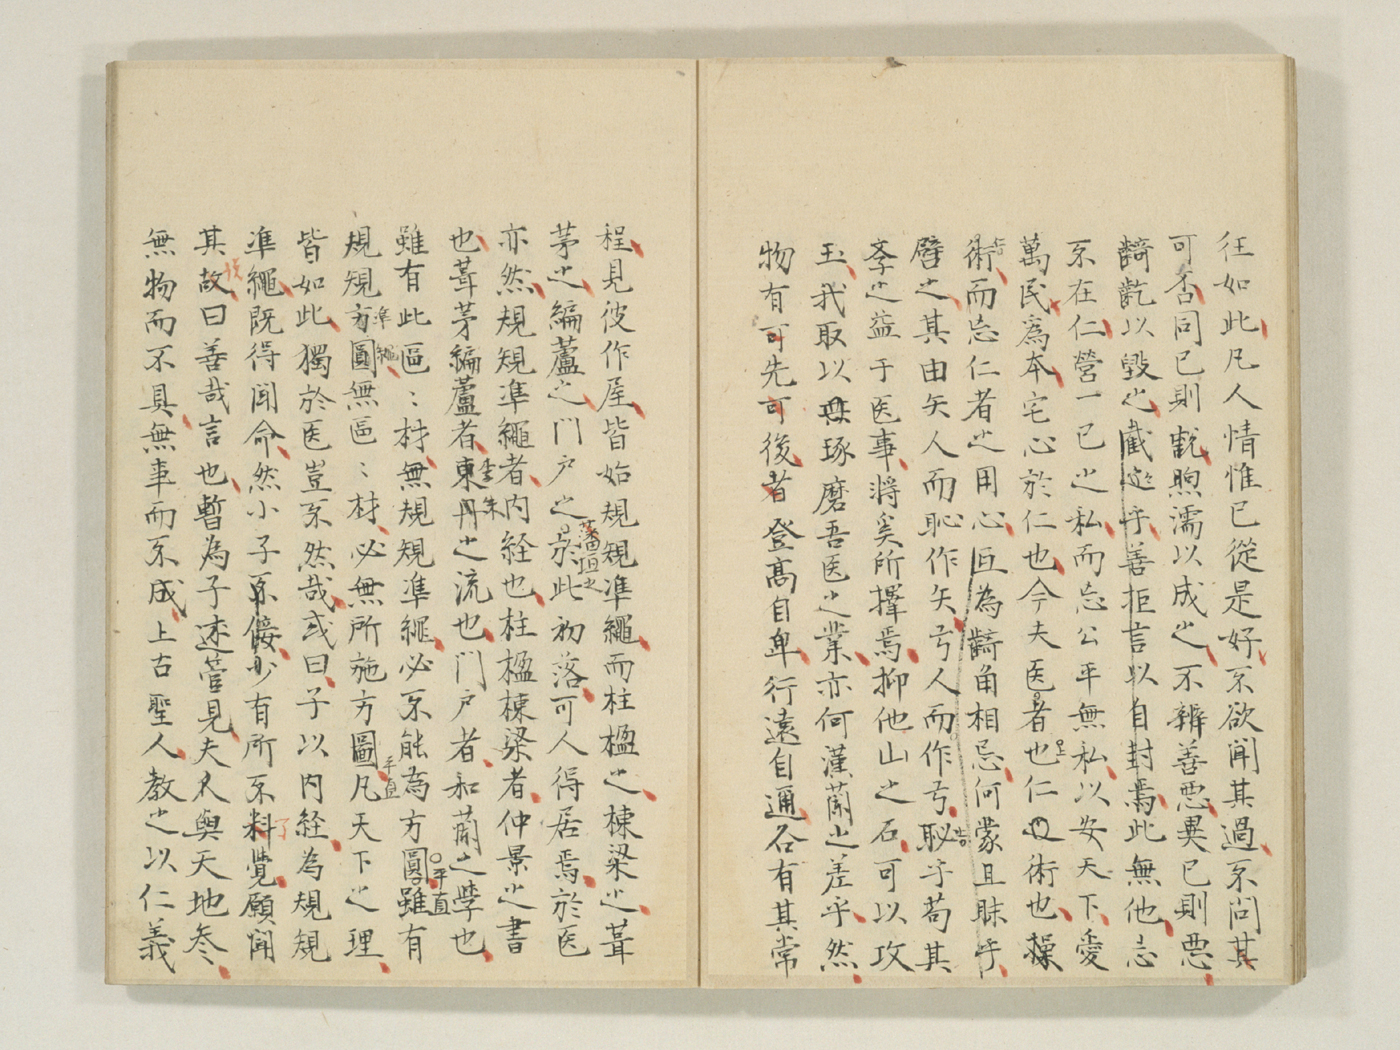 徃如此凡人情惟已從是好不欲聞其過不问其
可否同已則歡煦濡以成之不辨善恶異已則恶
齮齕以毀之截迹乎善拒言以自封焉此無他忘
不在仁營一已之私而忘公平無私以安天下愛
萬民爲本宅心於仁也今夫医者也仁之術也操
術而忘仁者之用心互為齮角相忌何蒙且眛乎
譬之其由矢人而恥作矢弓人而作弓恥乎苟其
之益于医事將奚所擇焉抑他山之石可以攻
玉我取以琢磨吾医之業亦何漢蘭之差乎然
物有可先可後者登髙自卑行遠自邇各有其常
程見彼作屋皆始規規準繩而柱楹之棟梁之葺
茅之編蘆之門户之藩垣之於此初落可人得居焉於医
亦然規規準繩者内経也柱楹棟梁者仲景之書
也葺茅編蘆者東丹之流也門户者和蘭之學也
雖有此區〻材無規規準繩必不能為方圓平直雖有
規規準繩無區〻材必無所施方圓平直凡天下之理
皆如此獨於医豈不然哉或曰子以内経為規規
準繩既得聞命然小子不佞少有所不料覺願聞
其故曰善哉言也暫為子述管見夫人與天地叅
無物而不具無事而不成上古聖人教之以仁義